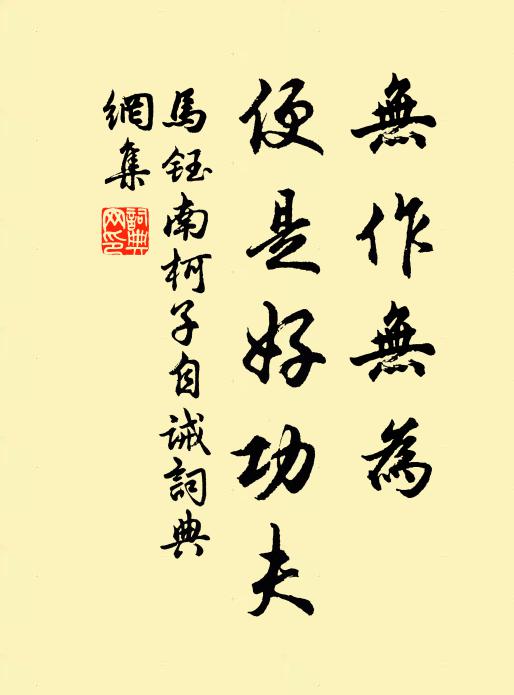 無作無為
便是好功夫
馬鈺南柯子自誡詞典
網集
詞典网印